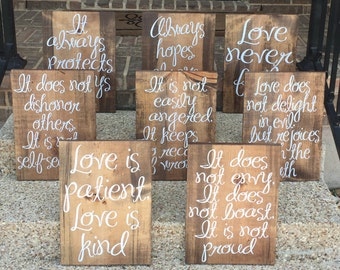 It
always
protects
Always
hopes
Love
never
It does not
dishonor
others
It is
It is not
easily
angered.
It keeps
Love does
not delight
in evil
but rejoices
the
Love is
patient
Love is
kind
It does
not envy.
It does
not boast.
It is not
proud